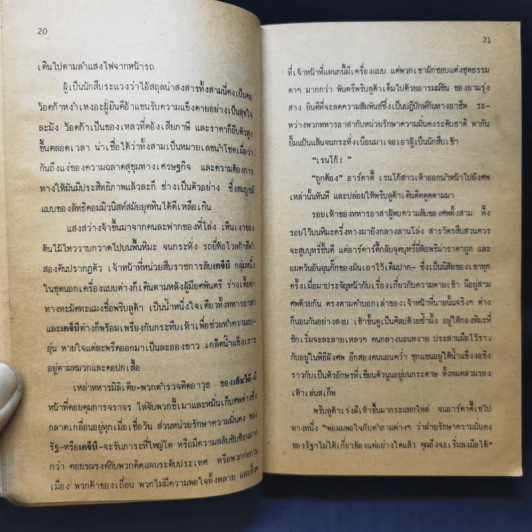 20
เดินไปตามลำแสงไฟจากหน้ารถ
ผู้เป็นนักสืบระแวงว่าไอ้สถุลน่าสงสารทั้งสามนี่คงเป็นคน
วอดก้าหงำเหงอะผู้ยินดีอ้าแขนรับความแข็งตายอย่างเป็นสุขใจ
ละมัง วอดก้าเป็นของเหลวที่ต้องเสียภาษี และราคาก็ถีบตัวสูง
ขึ้นตลอดเวลา น่าเชื่อได้ว่าทั้งสามเป็นหมายเลขนำโชคเมื่อว่า
กันถึงแง่ของความฉลาดสุขุมทางเศรษฐกิจ และความต้องการ
ทางให้มันมีประสิทธิภาพแล้วละก็ ช่างเป็นตัวอย่าง ซึ่งสมบูรณ์
แบบของลัทธิคอมมิวนิสท์สมัยยุคหินได้ดีเหลือเกิน
แสงสว่างจ้าขึ้นมาจากคนละฟากของที่โล่ง เห็นเงาของ
ต้นไม้ไหววาบกวาดไปบนพื้นหิมะ จนกระทั่ง รถยี่ห้อโวลก้าสีดำ
สองคันปรากฏตัว เจ้าหน้าที่หน่วยสืบราชการลับเคจีบี กลุ่มหนึ่ง
ในชุดนอกเครื่องแบบต่างก็เดินตามหลังผู้มียศพันตรี ร่างเตี้ยท่า
ทางทะมัดทะแมงชื่อพริบลูด้า เป็นน้ำหนึ่งใจเดียวทั้งทหารอาสา
และเคจีบีต่างก็พร้อมเพรียงกันกระทืบเท้าเพื่อช่วยทำความอบ-
อุ่น หายใจแต่ละพรืดออกมาเป็นละอองขาว เกล็ดน้ำแข็งเกาะ
อยู่ตามหมวกและคอปกเสื้อ
เหล่าทหารมิลิเตีย-พวกตำรวจติดอาวุธ ของเอ็มวีดี-มี
หน้าที่คอยคุมการจราจร ไล่จับพวกขี้เมาและหมั่นเก็บศพต่างซึ่ง
กลาดเกลื่อนอยู่ทุกเมื่อเชื่อวัน ส่วนหน่วยรักษาความมั่นคง ของ
รัฐ-หรือเคจีบี-จะรับภาระที่ใหญ่โต หรือมีความสลับซับซ้อนมาก
กว่า คอยรณรงค์กับพวกคิดแผนระดับประเทศ หรือพวกก่อกวน
เมือง พวกค้าของเถื่อน พวกไม่มีความพอใจทั้งหลาย และซึ่ง
21
ที่เจ้าหน้าที่แผนกนี้มีเครื่องแบบ แต่พวกเขามักชอบแต่งชุดธรรม
ดาๆ มากกว่า พันตรีพริบลูด้าเต็มไปด้วยอารมณ์ขัน ของยามรุ่ง
สาง ยินดีที่จะลดความสัมพันธ์ซึ่งเป็นปฏิปักษ์กันทางอาชีพ ระ-
หว่างพวกทหารอาสากับหน่วยรักษาความมั่นคงระดับชาติ พากัน
ยิ้มแป้นแล้นจนกระทั่งเบือนมาเจอเอาผู้เป็นนักสืบเข้า
"เรนโก้!"
"ถูกต้อง" อาร์คาดี้ เรนโก้สาวเท้าออกนำหน้าไปยังศพ
เหล่านั้นทันที และปล่อยให้พริบลูด้าเดินติดตูดตามมา
รอยเท้าของทหารอาสาผู้พบความลับของศพทั้งสาม ทิ้ง
รอยไว้บนหิมะครึ่งทางมายังกลางลานโล่ง สารวัตรสืบสวนควร
จะสูบบุหรี่ชั้นดี แต่อาร์คาดี้กลับจุดบุหรี่ยี่ห้อพริม่าราคาถูก และ
อมควันอันฉุนกึ้กของมันเอาไว้เต็มปาก- ซึ่งเป็นนิสัยของเขาทุก
ครั้งเมื่อมาประจัญหน้ากับ เรื่องเกี่ยวกับความตาย มีอยู่สาม
ศพด้วยกัน ตรงตามคำบอกเล่าของเจ้าหน้าที่นายนั้นจริงๆ ต่าง
ก็นอนกันอย่างสงบ เข้าขั้นดูเป็นศิลปด้วยซ้ำมั้ง อยู่ใต้กองหิมะที่
ชักเริ่มจะละลายเหลวๆ คนกลางนอนหงาย ประสานมือไว้ราว
กับอยู่ในพิธีฝังศพ อีกสองคนนอนคว่ำ ชูแขนอยู่ใต้น้ำแข็งเอซิง
ราวกับเป็นตัวอักษรที่เขียนตัวนูนอยู่บนกระดาษ ทั้งหมดสวมรอง
เท้าเล่นสเก็ท
พริบลูด้าเร่งฝีเท้าขึ้นมากระแทกไหล่ จนอาร์คาดี้เซไป
ทางหนึ่ง "พอผมพอใจกับคำถามต่างๆ ว่าฝ่ายรักษาความมั่นคง
ของรัฐฯไม่ได้เกี่ยวข้องแต่อย่างใดแล้ว คุณถึงจะเริ่มลงมือได้"